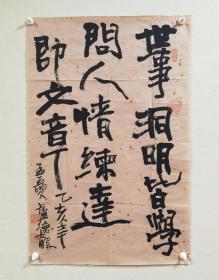 世事洞明皆學
問人情練達
即文章
乙亥年